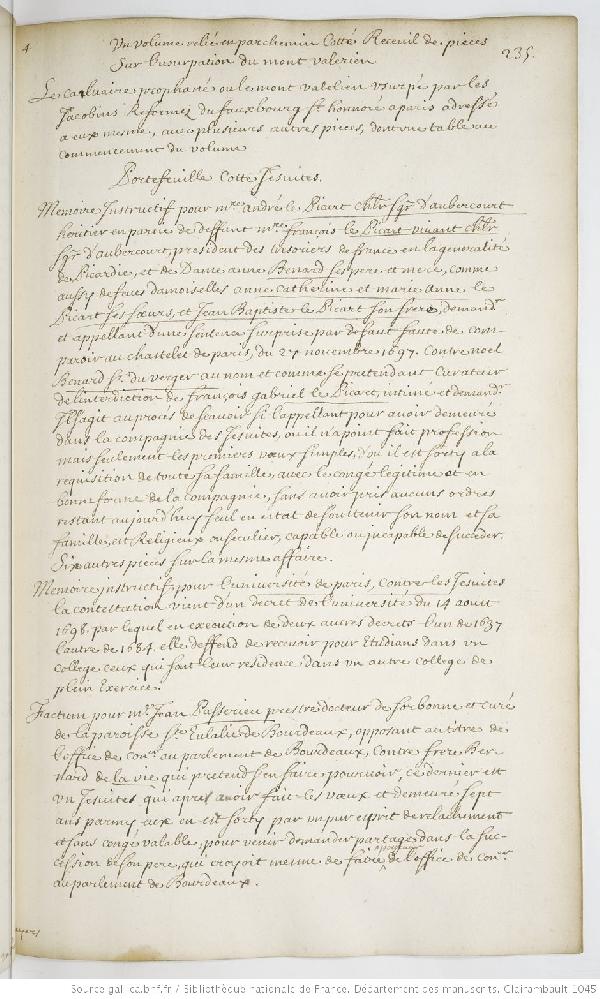 4
235.
Un volume relié en parchemin Cotté Receuil de pieces
Sur l'usurpation du mont valerien
Le calvaire prophané ou le mont valelien usurpé par les
Jacobins Reformez du fauxbourg St honnoré a paris adressé
a eux mesme, avec plusieurs autres pieces, dont une table au
commencement du volume
Portefeuille Cotté Jesuites.
Memoire Instructif pour mre André le Picart chlr Sgr d'aubercourt
heritier en partie de deffunt mre françois le Picart vivant chlr
Sgr d'aubercourt, president des tresoriers de france en la generalité
de Picardie, et de Dame anne Benard ses pere et mere, comme
aussy de feues damoiselles anne catherine et marie anne le
Picart ses sœurs, et Jean Baptiste le Picart son frere, demandr
et appellant d'une sentence surprise par defaut faute de com-
paroir au chastelet de paris, du 27 novembre 1697. Contre noel
Benard Sr. du verger au nom et comme se pretendant curateur
de l'interdiction de françois gabriel le Picart, intimé et demandr.
Il s'agit au procès de sçavoir si l'appellant pour avoir demeuré
dans la compagnie des Jesuites, ou il n'a point fait profession
mais seulement les premiers vœux simples, d'ou il est sorty a la
requisition de toute sa famille, avec le congé legitime et en
bonne forme de la compagnie, sans avoir pris aucuns ordres
restant aujourd'huy seul en estat de soustenir son nom et sa
famille, est Religieux ou seculier, capable ou incapable de succeder.
Six autres pieces sur la mesme affaire.
Memoire instructif pour l'université de paris, contre les Jesuites
la contestation vient d'un decret de l'université du 14 aoust
1698. par lequel en execution de deux autres decrets l'un de 1637
l'autre de 1684. elle deffend de recevoir pour Etudians dans un
college ceux qui font leur residence dans un autre college de
plein Exercice.
Factum pour mr. Jean prestre docteur de sorbonne et curé
de la paroisse Ste Eulalie de Bourdeaux, opposant au titre de
l'office de conr. au parlement de Bourdeaux, Contre frere Ber-
nard de la vie qui pretend s'en faire pourvoir, ce dernier est
un Jesuites qui apres avoir fait les vœux et demeuré sept
ans parmy eux en est sorty par un pur esprit de relachement
et sans congé valable, pour venir demander partage dans la suc-
cession de son pere, qui croyoit mesme de faire de l'office de conr.
au parlement de Bourdeaux.
Source gallica.bnf.fr / Bibliothèque nationale de France. Département des manuscrits. Clairambault 1045